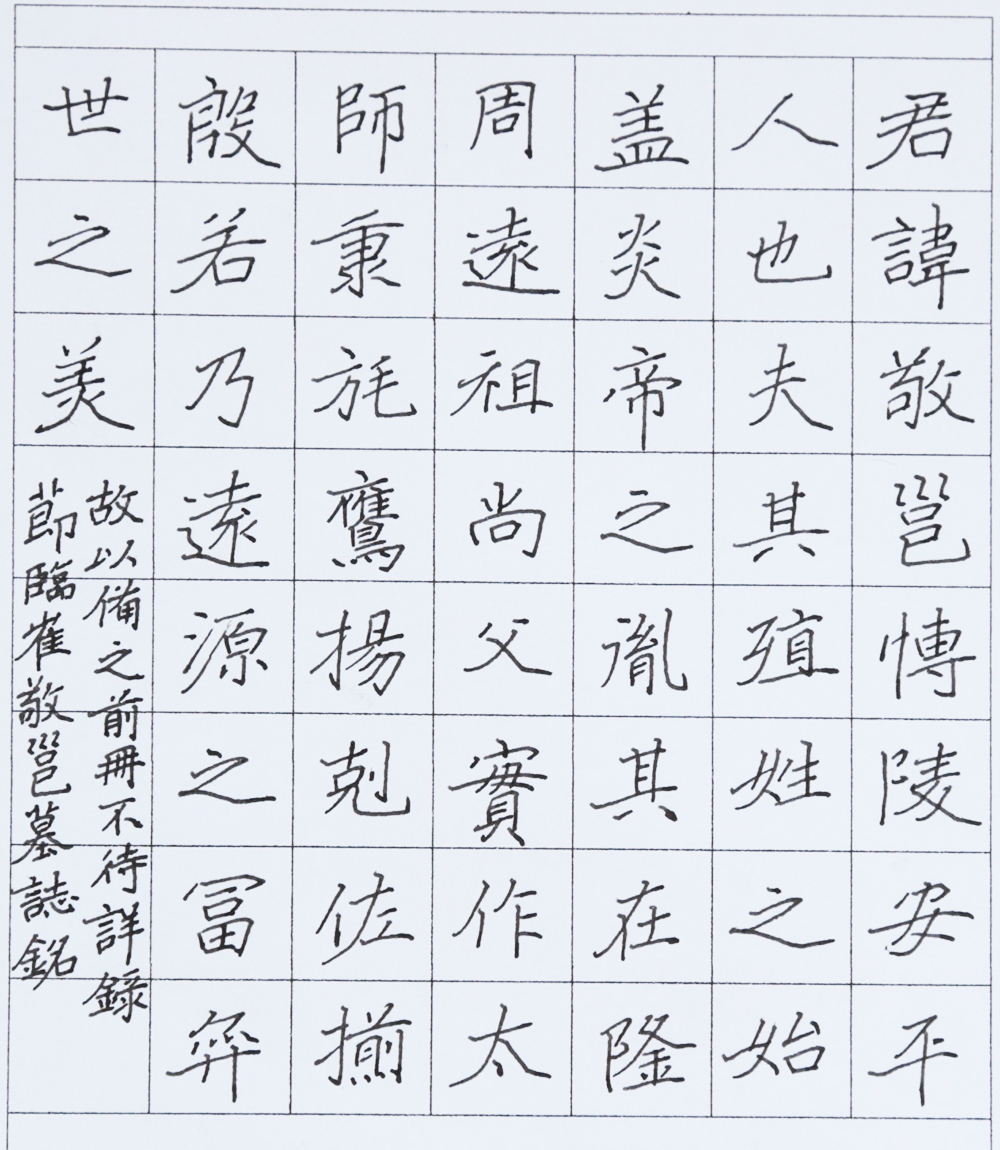 君諱敬邕愽陵安平
人也夫其殖姓之始
盖炎帝之胤其在隆
周遠祖尚父實作太
師秉旄鷹揚剋佐揃
殷若乃遠源之冨弈
世之美
故以備之前冊不待詳錄
節臨崔敬邕墓誌銘